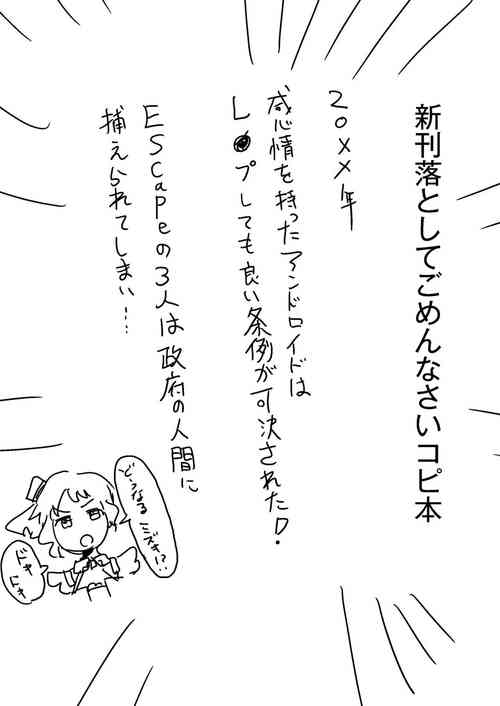 新刊落としてごめんなさいコピ本
20XX年
感情を持ったアンドロイドは
L●プしても良い条例が可決された!
EScapeの3人は政府の人間に
捕えられてしまい……
どうなるミズキ!?
ドキ
ドキ